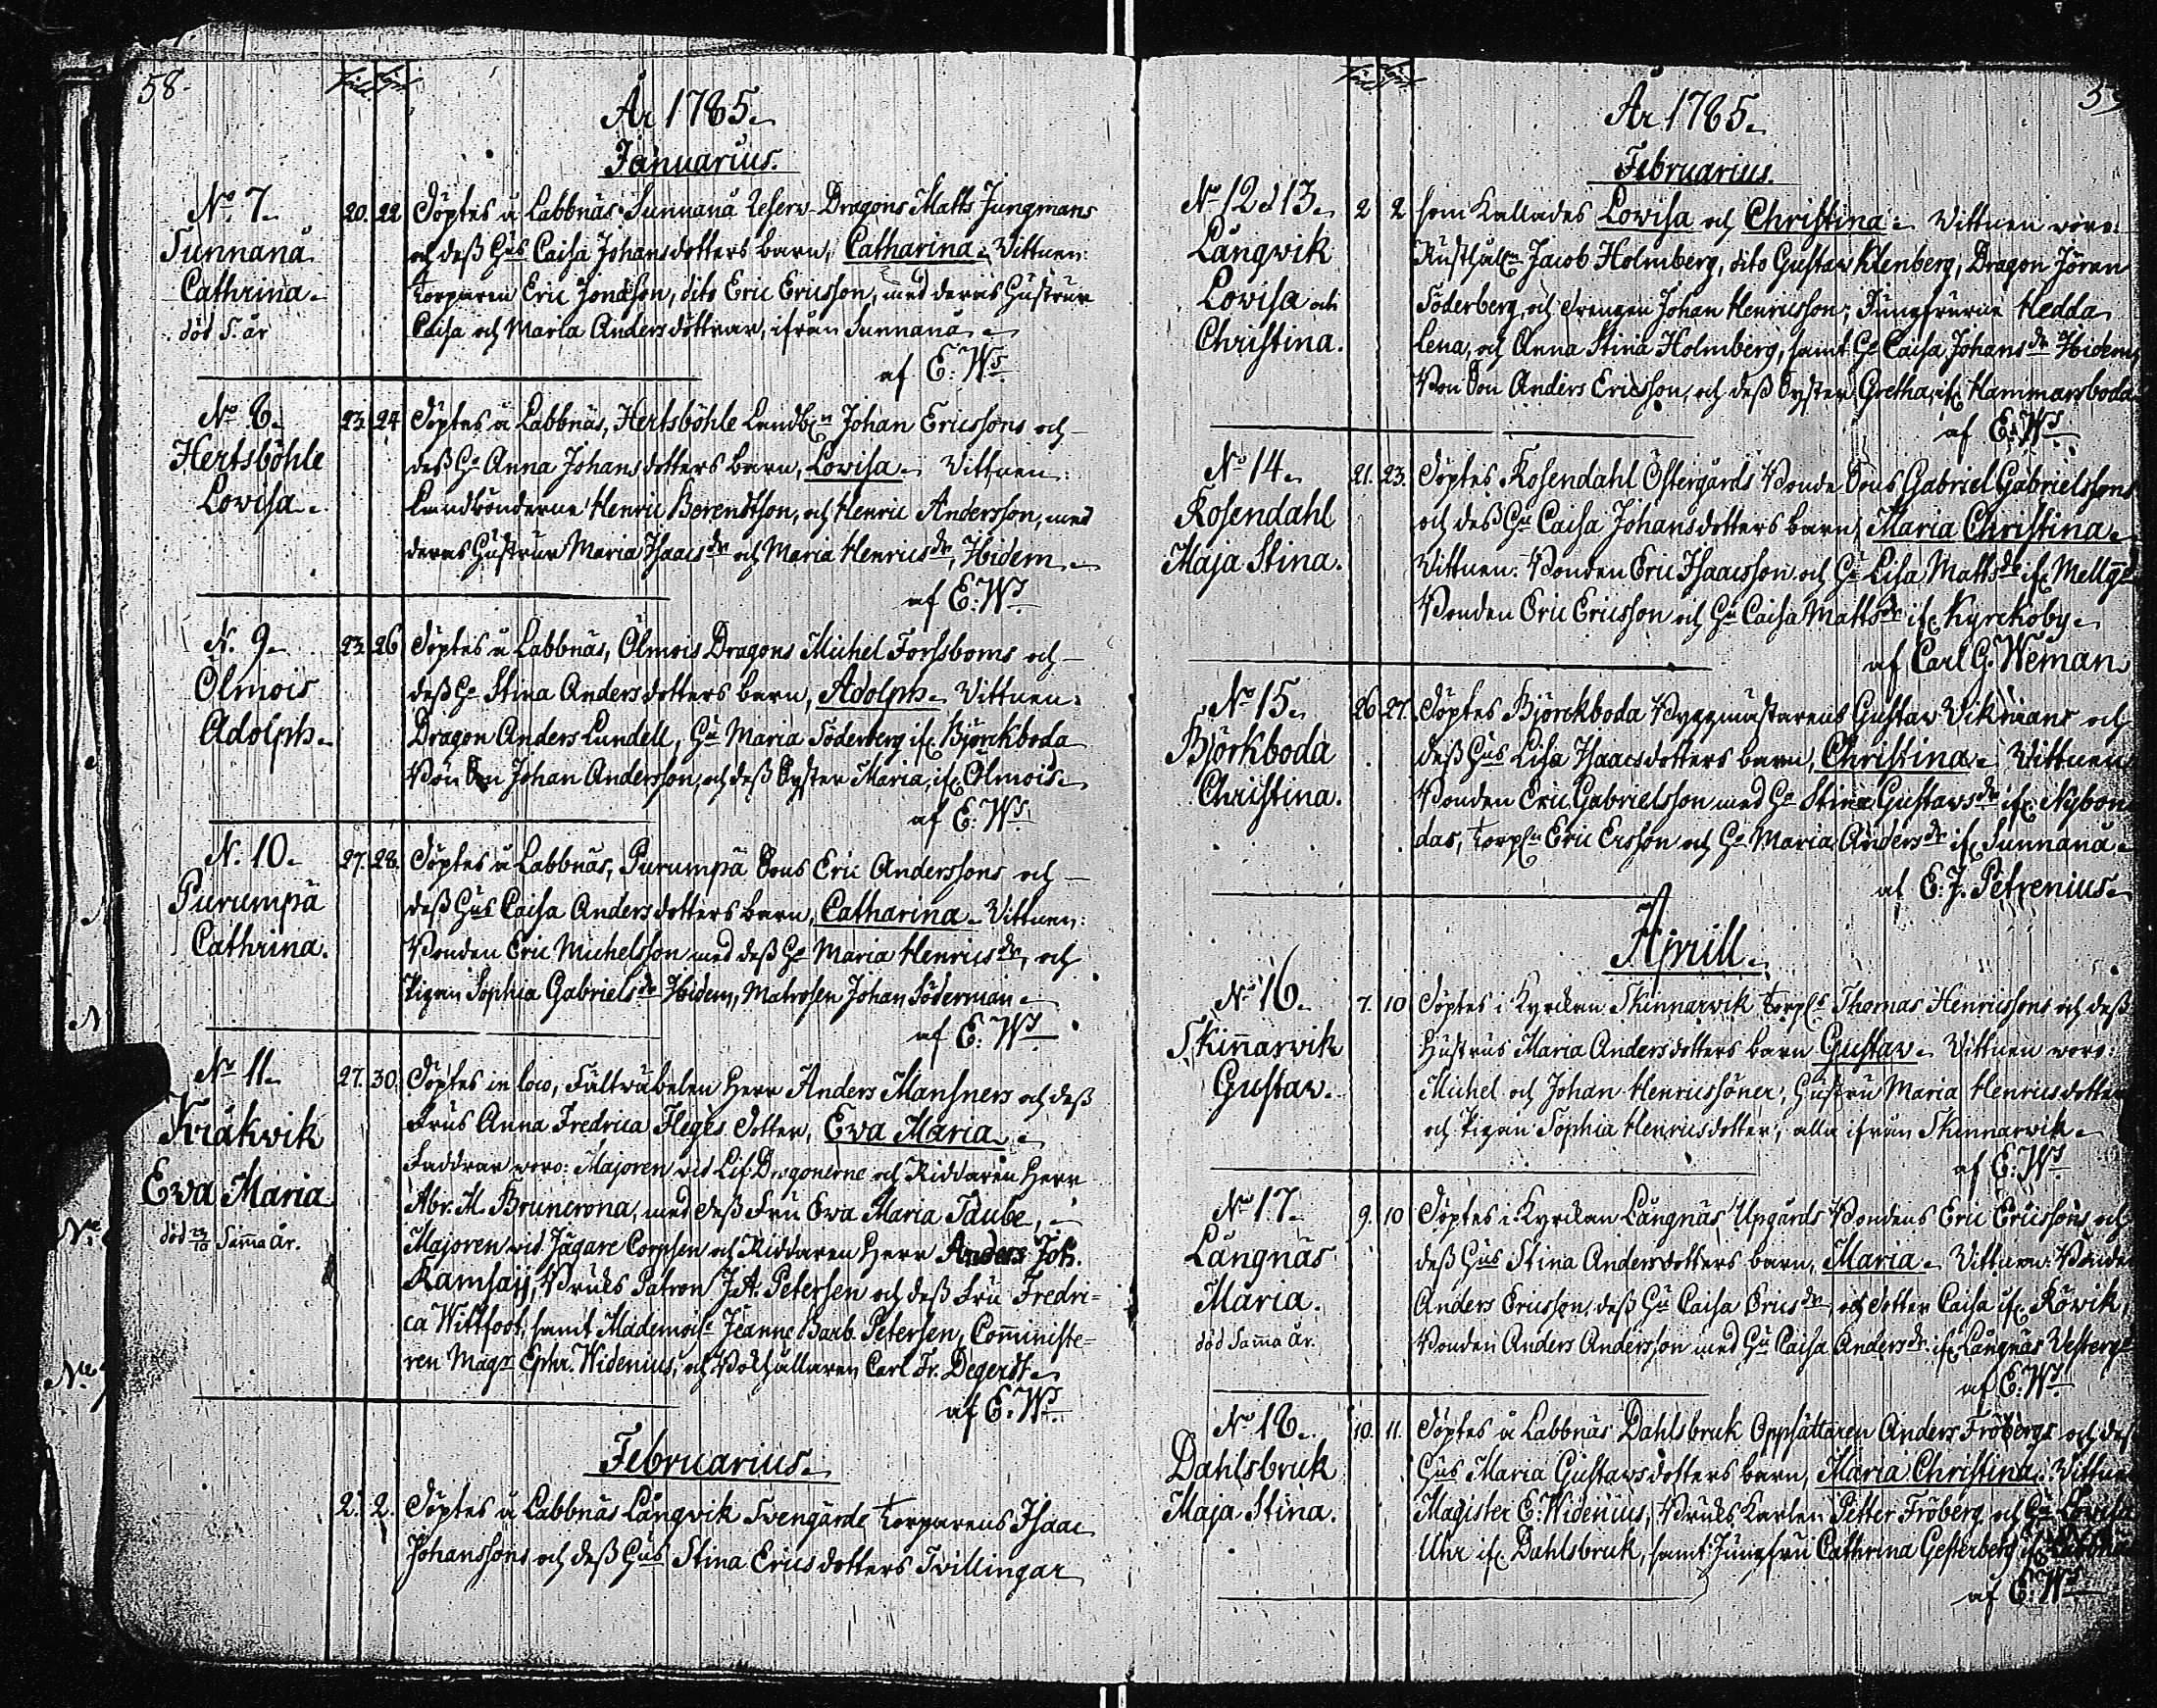 58.
År 1785.
Januarius.
No. 7. 20. 22 Döptes å Labbnäs, Sunnanå Reserv-Dragons Matts Jungmans
Sunnanå och deß Hus Caisa Johansdotters barn, Catharina. Vittnen:
Cathrina. Torparen Eric Jonasson, dito Eric Ericsson, med deras Hustrur
död S. år Caisa och Maria Andersdöttrar, ifrån Sunnanå.
af E. Ws.
No 8. 23. 24 Döptes å Labbnäs, Hertsböhle Landbn Johan Ericssons och
Hertsböhle deß Ho Anna Johansdotters barn, Lovisa. Vittnen:
Lovisa. Landbönderne Henric Berendtson, och Henric Andersson, med
deras Hustrur Maria Isaacsdr och Maria Henricsdr, Ibidem.
af E. Ws.
N. 9. 23. 26 Döptes å Labbnäs, Ölmois Dragons Michel Forssboms och
Ölmois deß Ho Stina Andersdotters barn, Adolph. Vittnen:
Adolph. Dragon Anders Lundell, Hu Maria Söderberg if. Björckboda
Bon Son Johan Andersson, och deß Syster Maria, if. Ölmois.
af E. Ws.
N. 10. 27. 28. Döptes å Labbnäs, Purumpä Sons Eric Anderssons och
Purumpä deß Hus Caisa Andersdotters barn, Catharina. Vittnen:
Cathrina. Bonden Eric Michelsson med deß Ho Maria Henricsdr, och
Pigan Sophia Gabrielsdr Ibidem, Matrosen Johan Söderman.
af E. Ws
No 11. 27. 30. Döptes in loco, Fältwäbelen Herr Anders Mansners och deß
Kråkvik Frus Anna Fredrica Fleges dotter, Eva Maria.
Eva Maria Faddrar voro: Majoren vid Lif-Dragonerne och Riddaren Herr
Abr. M. Bruncrona, med deß Fru Eva Maria Taube,
död 23/10 Samma år. Majoren vid Jägare Corpsen och Riddaren Herr Anders Joh.
Ramsaij, Bruks Patron J. A. Petersen och deß Fru Fredri=
ca Wittfoot, samt Mademoise Jeanne Barb. Petersen, Cominste=
ren Magr Ephr. Widenius, och Bokhållaren Carl Fr. Degerdt.
af E. Ws.
Februarius.
2. 2. Döptes å Labbnäs Långvik Svengårde Torparens Isaac
Johanssons och deß Hus Stina Ericsdotters Tvillingar
År 1785.
Februarius.
No 12 & 13. 2 2 som kallades Lovisa och Christina. Vittnen voro:
Långvik Rusthåln Jacob Holmberg, dito Gustav Klenberg, Dragon Jöran
Lovisa och Söderberg, och drengen Johan Henricsson; Jungfrurne Hedda
Christina. Lena, och Anna Stina Holmberg, samt Ho Caisa Johansdr Ibidem,
Bon Son Anders Ericsson, och deß Syster Gretha, if. Hammarsboda
af E. Ws
No 14. 21. 23. Döptes Rosendahl Östergårds Bonde Sons Gabriel Gabrielssons
Rosendahl och deß Hu Caisa Johansdotters barn, Maria Christina.
Maja Stina. Vittnen: Bonden Eric Isaacsson och Hu Lisa Mattsdr if. Mellgd
Bonden Eric Ericsson och Hu Caisa Mattsdr if. Kyrckoby.
af Carl G. Weman
No 15. 26 27. Döptes Björckboda Byggmästarens Gustav Vikmans och
Björkboda deß Hus Lisa Isaacsdotters barn, Christina. Vittnen
Christina. Bonden Eric Gabrielsson med Ho Stina Gustavsdr if. Nybon
das, Torpn Eric Ersson och Ho Maria Andersdr if. Sunnanå.
af E. J. Petrenius.
Aprill.
No 16. 7. 10 Döptes i Kyrckan Skinnarvik Torps Thomas Henricssons och deß
Skinnarvik Hustrus Maria Andersdotters barn Gustav. Vittnen voro:
Gustav. Michel och Johan Henricssöner, Hustru Maria Henricsdotter
och Pigan Sophia Henricsdotter, alla ifrån Skinnarvik.
af E. Ws
No 17. 9. 10 Döptes i Kyrckan Långnäs Upgårds Bondens Eric Ericssons och
Långnäs deß Hus Stina Andersdotters barn, Maria. Vittnen: Bonden
Maria. Anders Ericsson, deß Hu Caisa Ericsdr och dotter Caisa if. Rövik,
död Samma år. Bonden Anders Andersson med Hu Caisa Andersdr if. Långnäs Vesterg
af E. Ws
No 18. 10. 11. Döptes å Labbnäs Dahlsbruk Oppsättaren Anders Fröbergs och deß
Dahlsbruk Hus Maria Gustavsdotters barn, Maria Christina. Vittnen
Maja Stina. Magister E. Widenius, Bruks Karlen Petter Fröberg och Hu Lovisa
Uhr if. Dahlsbruk, samt Jungfru Cathrina Gesterberg
af E. Ws